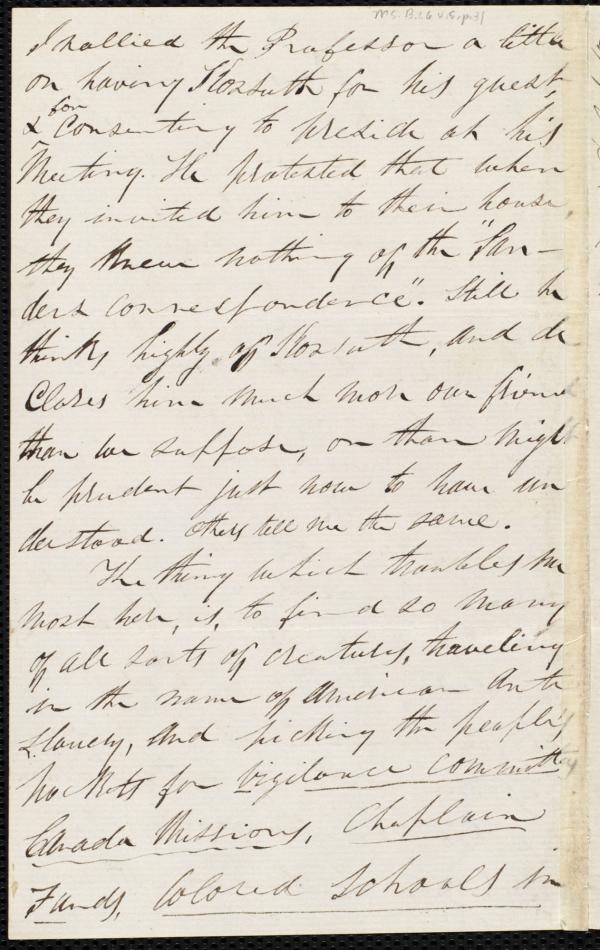 Ms. B.1.6 v.5, p.31
I rallied the Professor a little
on having Kossuth for his guest,
& for Consenting to preside at his
Meeting. He protested that when
they invited him to their house,
they knew nothing of the "San-
ders correspondence". Still he
thinks highly of Kossuth, and de
Clares him much more our friend
than we suppose, or than might
be prudent just now to have un
derstood. Others tell me the same.
The thing which troubles me
most here, is, to find so many
of all sorts of creatures, traveling
in the name of American Anti
Slavery, and picking the people's
pockets for Vigilance Committees
Canada Missions, Chaplain
Funds, Colored Schools in